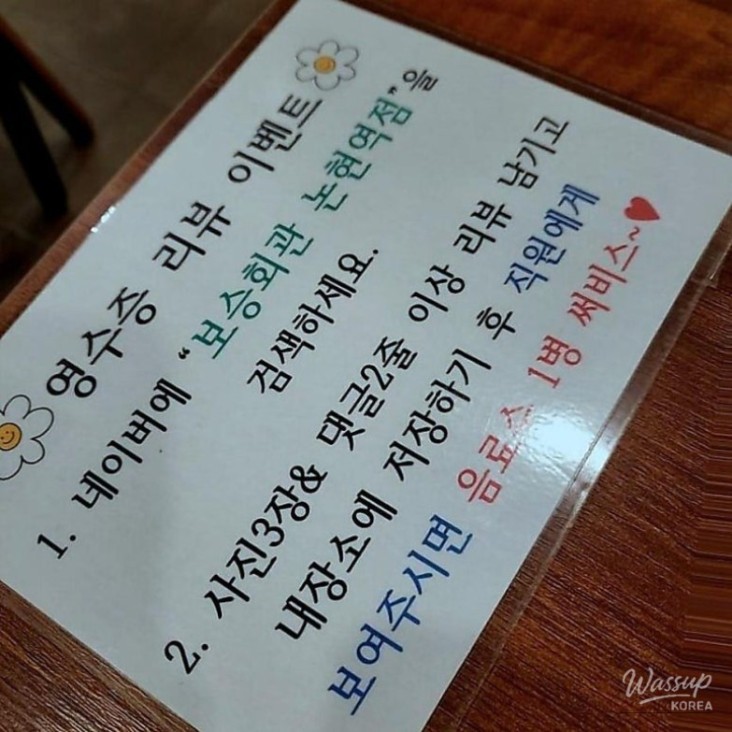 영수증 리뷰 이벤트
1. 네이버에 "보승회관 논현역점"을
검색하세요.
2. 사진3장& 댓글2줄 이상 리뷰 남기고
내장소에 저장하기 후 직원에게
보여주시면 음료수 1병 써비스~♥
Wassup
KOREA